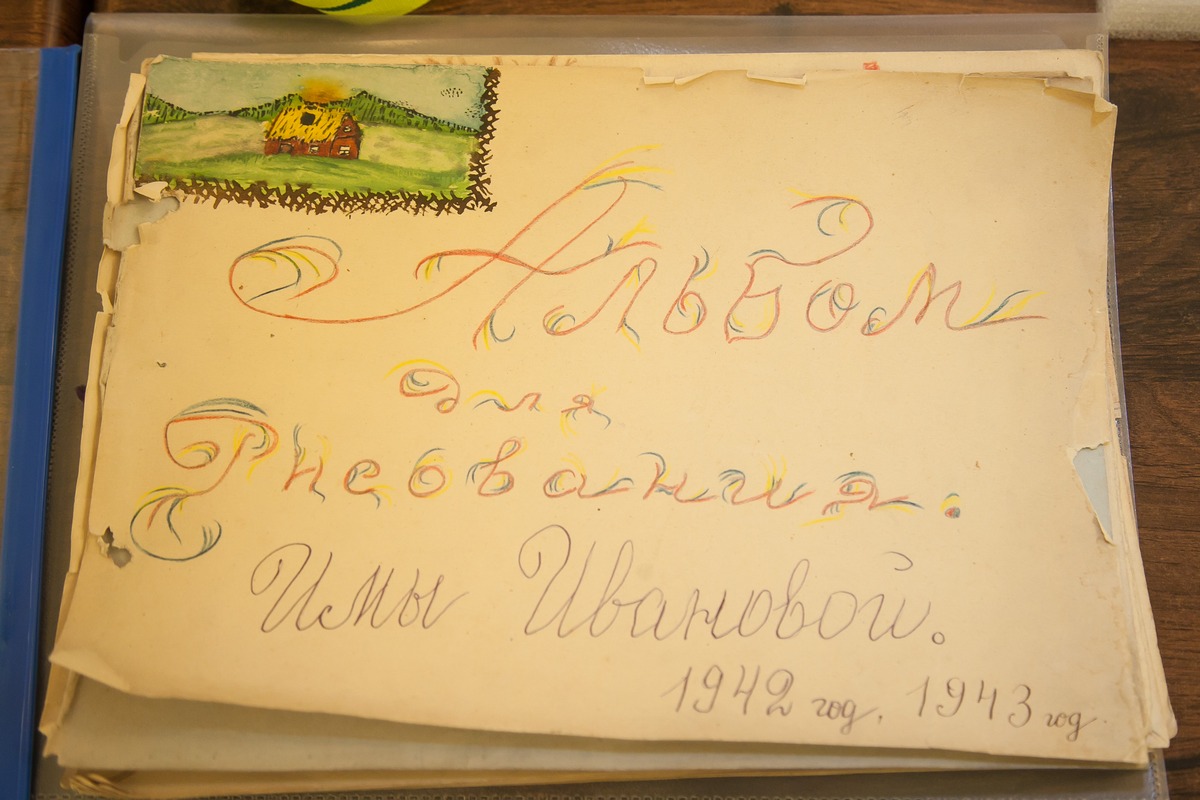 Альбом
для
Рисования.
Имы Ивановой.
1942 год. 1943 год.